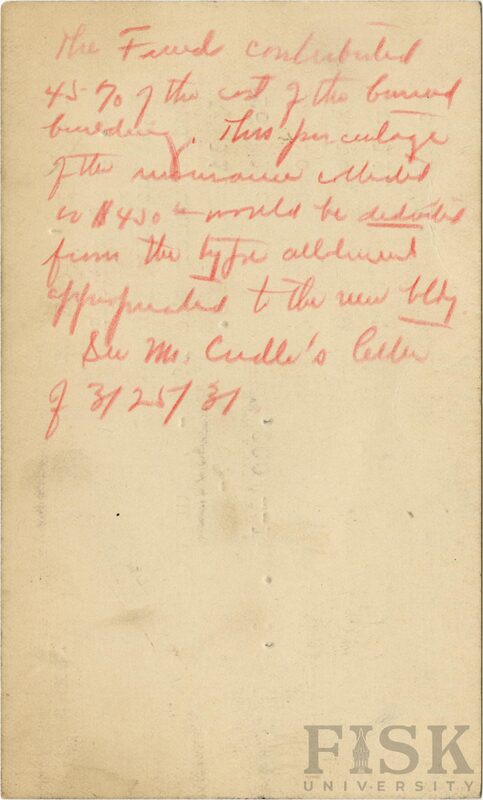 The Fund contributed
45% of the cost of the burned
building. This percentage
of the insurance
or $450 would be deducted
from the type allotment
appropriated to the new bldg.
See Mr. Cudle's letter
of 3/25/31
FISK
UNIVERSITY